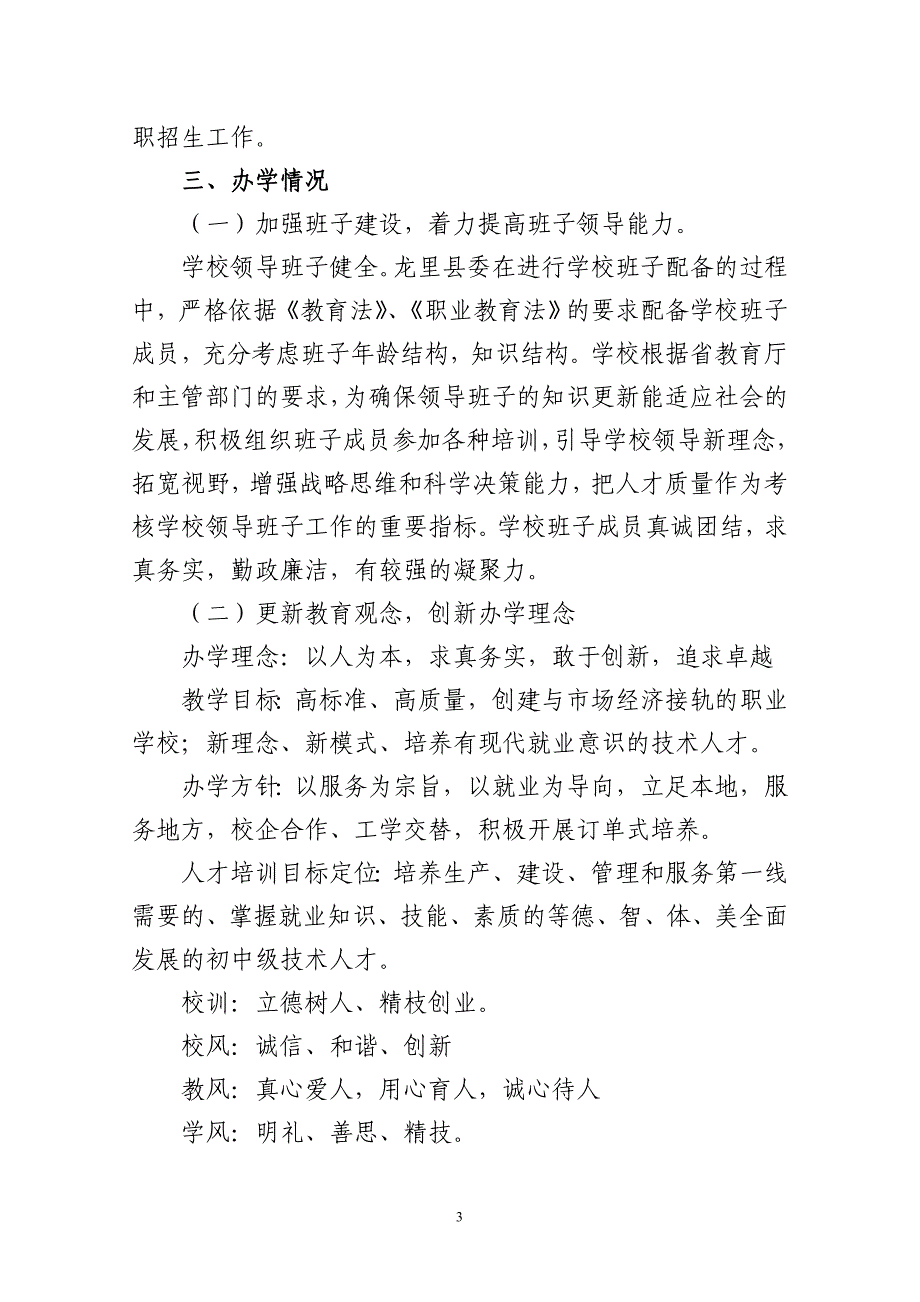 职招生工作。
三、办学情况
（一）加强班子建设，着力提高班子领导能力。
学校领导班子健全。龙里县委在进行学校班子配备的过程
中，严格依据《教育法》、《职业教育法》的要求配备学校班子
成员，充分考虑班子年龄结构，知识结构。学校根据省教育厅
和主管部门的要求，为确保领导班子的知识更新能适应社会的
发展，积极组织班子成员参加各种培训，引导学校领导新理念，
拓宽视野，增强战略思维和科学决策能力，把人才质量作为考
核学校领导班子工作的重要指标。学校班子成员真诚团结，求
真务实，勤政廉洁，有较强的凝聚力。
（二）更新教育观念，创新办学理念
办学理念：以人为本，求真务实，敢于创新，追求卓越
教学目标：高标准、高质量，创建与市场经济接轨的职业
学校；新理念、新模式、培养有现代就业意识的技术人才。
办学方针：以服务为宗旨，以就业为导向，立足本地，服
务地方，校企合作、工学交替，积极开展订单式培养。
人才培训目标定位：培养生产、建设、管理和服务第一线
需要的、掌握就业知识、技能、素质的等德、智、体、美全面
发展的初中级技术人才。
校训：立德树人、精枝创业。
校风：诚信、和谐、创新
教风：真心爱人，用心育人，诚心待人
学风：明礼、善思、精技。
3